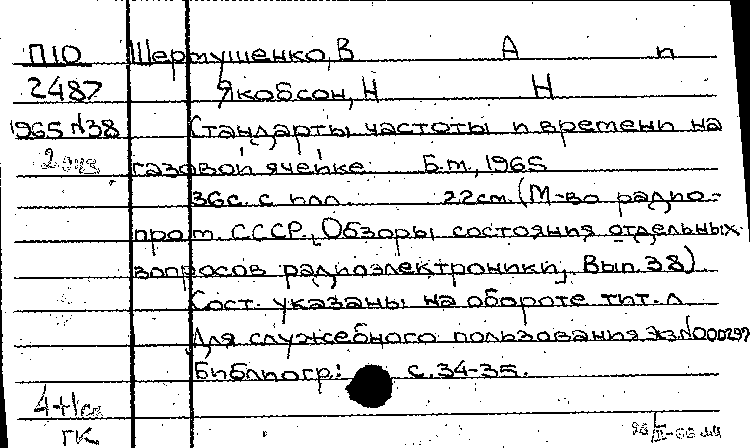 П10 Шермушенко, В А и
2487 Якобсон, Н Н
1965 №38 Стандарты частоты и времени на
2 экз газовой ячейке. Б.м., 1965
36с. с илл. 22см. (М-во радио-
пром. СССР. Обзоры состояния отдельных
вопросов радиоэлектроники, Вып. 38)
Сост. указаны на обороте тит. л.
Для служебного пользования Экз№000297
Библиогр: с. 34-35.
ГК